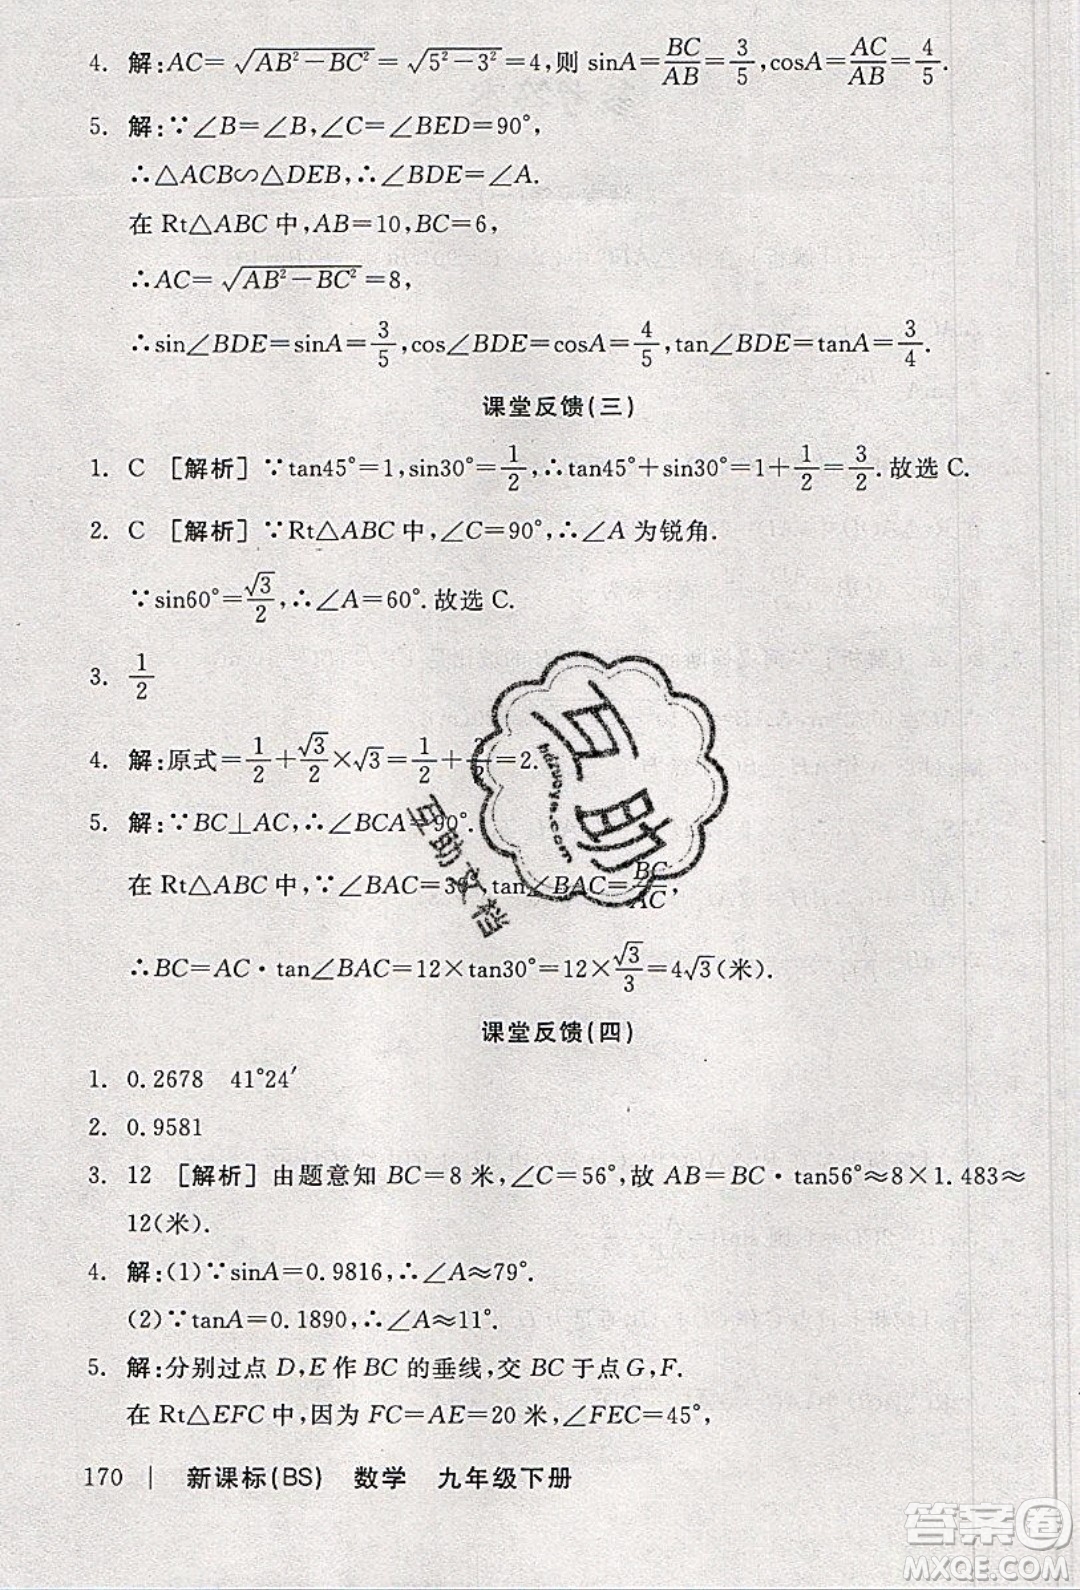 4. 解:AC=√(AB²-BC²)=√(5²-3²)=4,则 sinA=BC/AB=3/5,cosA=AC/AB=4/5.
5. 解:∵∠B=∠B,∠C=∠BED=90°,
∴△ACB∽△DEB,∴∠BDE=∠A.
在 Rt△ABC 中,AB=10,BC=6,
∴AC=√(AB²-BC²)=8,
∴sin∠BDE=sinA=3/5,cos∠BDE=cosA=4/5,tan∠BDE=tanA=3/4.
课堂反馈(三)
1. C [解析]∵tan45°=1,sin30°=1/2,∴tan45°+sin30°=1+1/2=3/2.故选 C.
2. C [解析]∵Rt△ABC 中,∠C=90°,∴∠A 为锐角.
∵sin60°=√3/2,∴∠A=60°.故选 C.
3. 1/2
4. 解:原式=1/2+√3/2×√3=1/2+3/2=2.
5. 解:∵BC⊥AC,∴∠BCA=90°.
在 Rt△ABC 中,∵∠BAC=30°,tan∠BAC=BC/AC,
∴BC=AC·tan∠BAC=12×tan30°=12×√3/3=4√3(米).
课堂反馈(四)
1. 0.2678 41°24′
2. 0.9581
3. 12 [解析]由题意知 BC=8 米,∠C=56°,故 AB=BC·tan56°≈8×1.483≈
12(米).
4. 解:(1)∵sinA=0.9816,∴∠A≈79°.
(2)∵tanA=0.1890,∴∠A≈11°.
5. 解:分别过点 D,E 作 BC 的垂线,交 BC 于点 G,F.
在 Rt△EFC 中,因为 FC=AE=20 米,∠FEC=45°,
170 | 新课标(BS) 数学 九年级下册
互助
hdzuoye.com
互助文档
答案圈
MXQE.COM